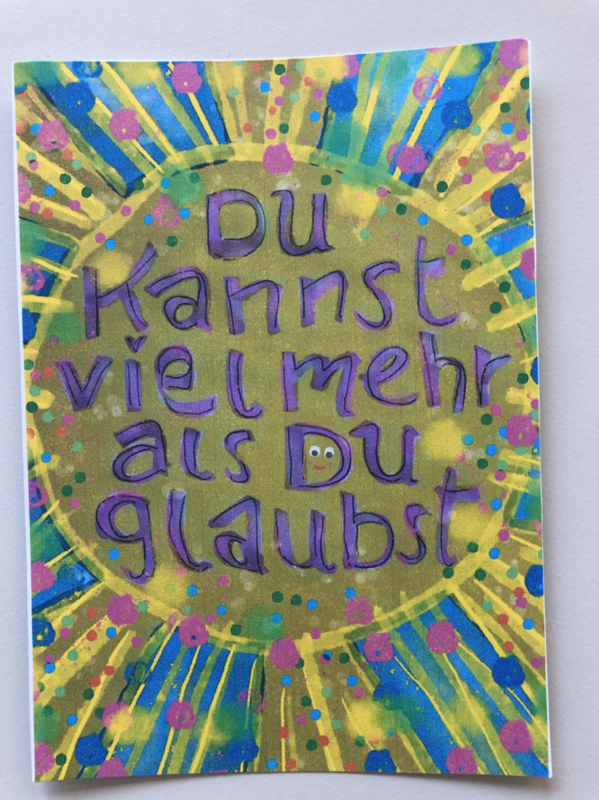 Du
kannst
viel mehr
als Du
glaubst